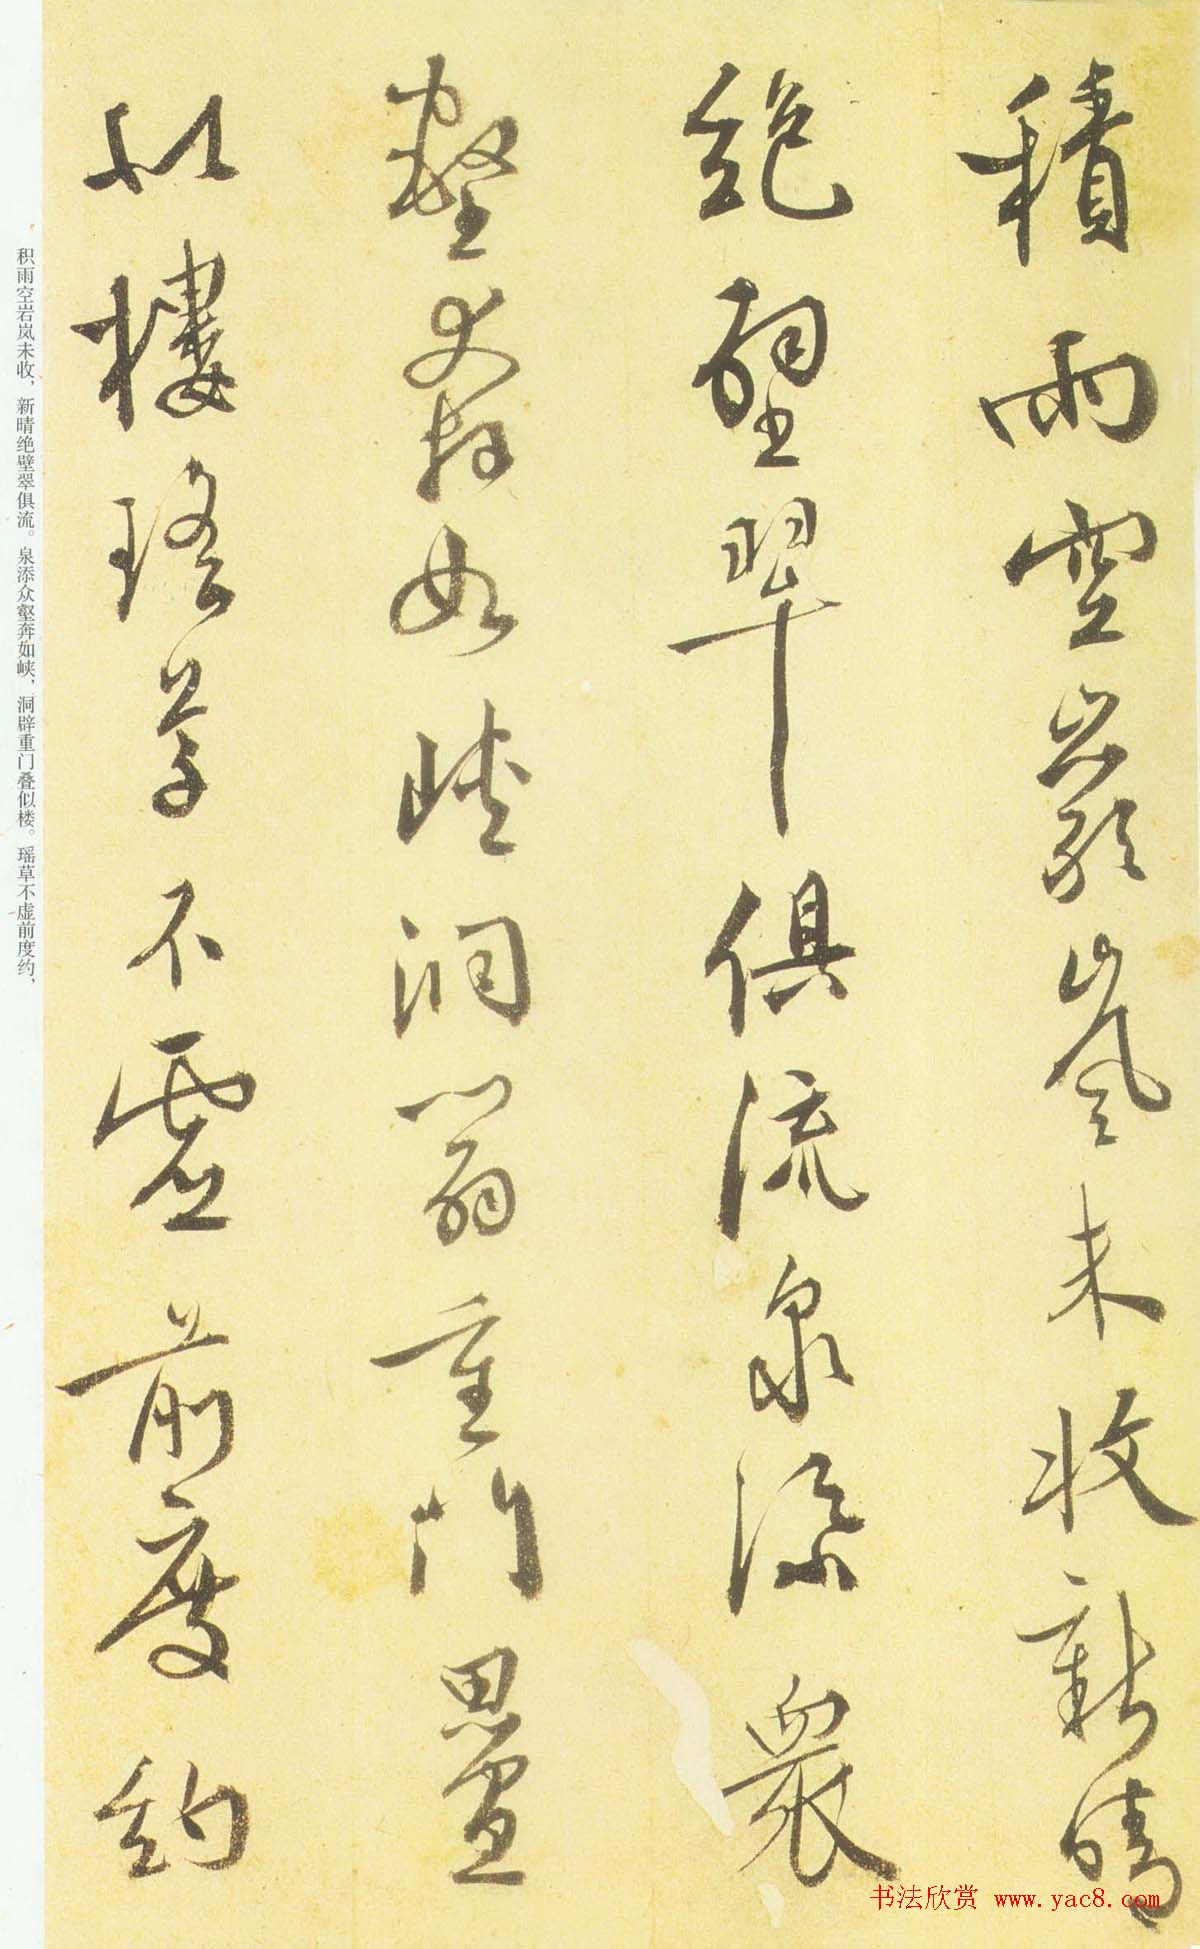 積雨空巖嵐未收新晴
絕壁翠俱流泉添衆
壑奔如峽洞闢重門疊
似樓瑤草不虛前度約
积雨空岩岚未收，新晴绝壁翠俱流。泉添众壑奔如峡，洞辟重门叠似楼。瑶草不虚前度约，
书法欣赏 www.yac8.com